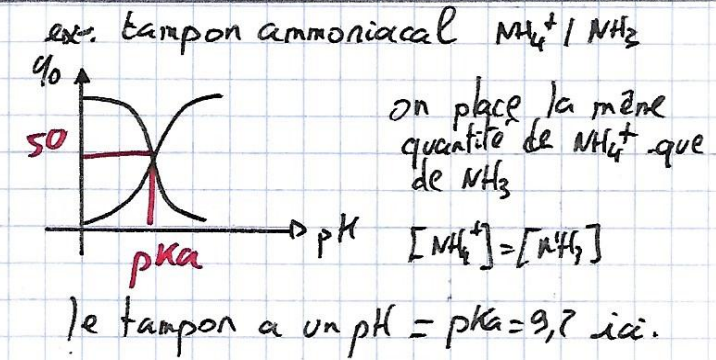 ex: tampon ammoniacal NH₄⁺ / NH₃
%
on place la même
50
quantité de NH₄⁺ que
de NH₃
pH
[NH₄⁺]=[NH₃]
pKa
le tampon a un pH = pKa = 9,2 ici.